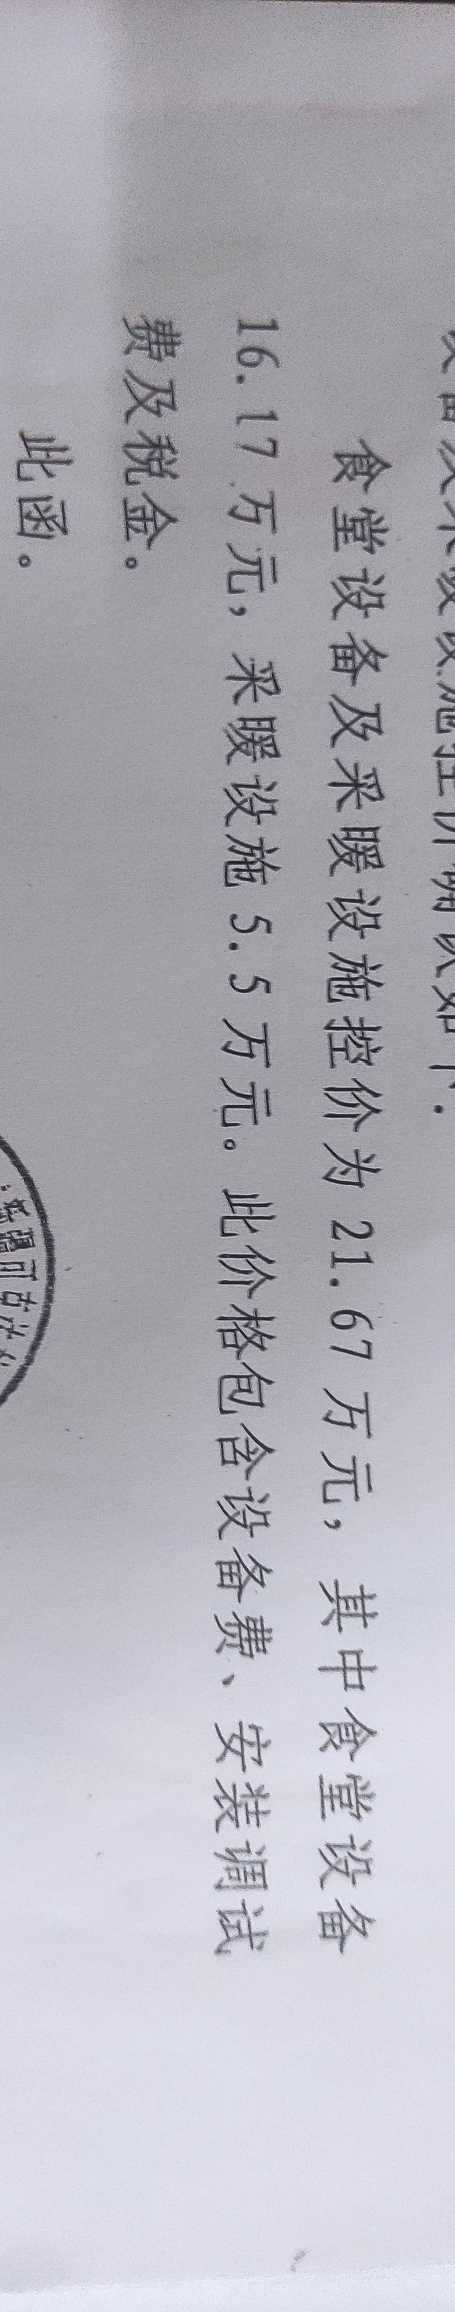 设备及采暖设施控价确认如下：
食堂设备及采暖设施控价为 21.67 万元，其中食堂设备
16.17 万元，采暖设施 5.5 万元。此价格包含设备费、安装调试
费及税金。
此函。